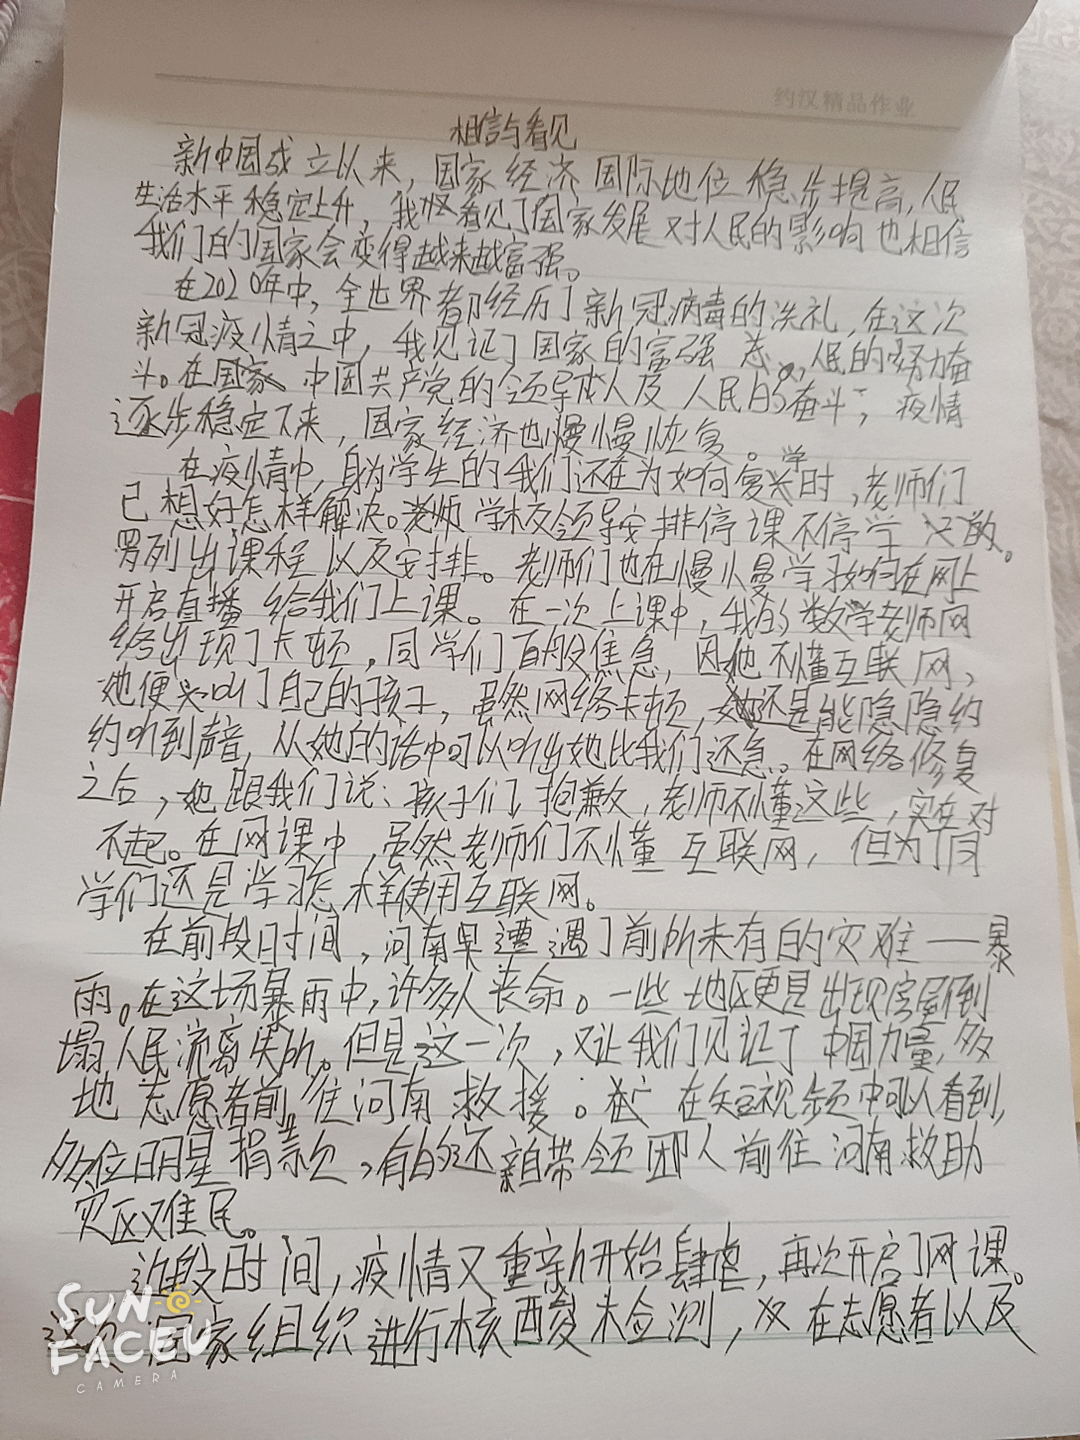 约汉精品作业
相信与看见
新中国成立以来，国家经济国际地位稳步提高，人民
生活水平稳定上升，我看见了国家发展对人民的影响也相信
我们的国家会变得越来越富强。
在2020年中，全世界都经历了新冠病毒的洗礼，在这次
新冠疫情之中，我见证了国家的富强，人民的努力奋
斗。在国家中国共产党的领导成人及人民的奋斗，疫情
逐步稳定下来，国家经济也慢慢恢复。
在疫情中，身为学生的我们还在为如何复学时，老师们
已想好怎样解决。老师学校领导安排停课不停学
罗列出课程以及安排。老师们也在慢慢学习如何在网上
开启直播给我们上课。在一次上课中，我的数学老师网
络出现了卡顿，同学们百般焦急，因她不懂互联网，
她便叫了自己的孩子，虽然网络卡顿，还是能隐隐约
约听到声音，从她的话中可以听出她比我们还急。在网络修复
之后，她跟我们说：孩子们，抱歉，老师不懂这些，实在对
不起。在网课中，虽然老师们不懂互联网，但为了同
学们还是学习怎样使用互联网。
在前段时间，河南早遭遇了前所未有的灾难——暴
雨。在这场暴雨中，许多人丧命。一些地区更是出现房屋倒
塌人民流离失所。但是这一次，又让我们见证了中国力量，多
地志愿者前往河南救援。在短视频中可以看到，
多位明星捐款，有的还亲自带领团人前往河南救助
灾区难民。
近段时间，疫情又重新开始肆虐，再次开启了网课。
这次国家组织进行核酸检测，在志愿者以及
SUN
FACEU
CAMERA